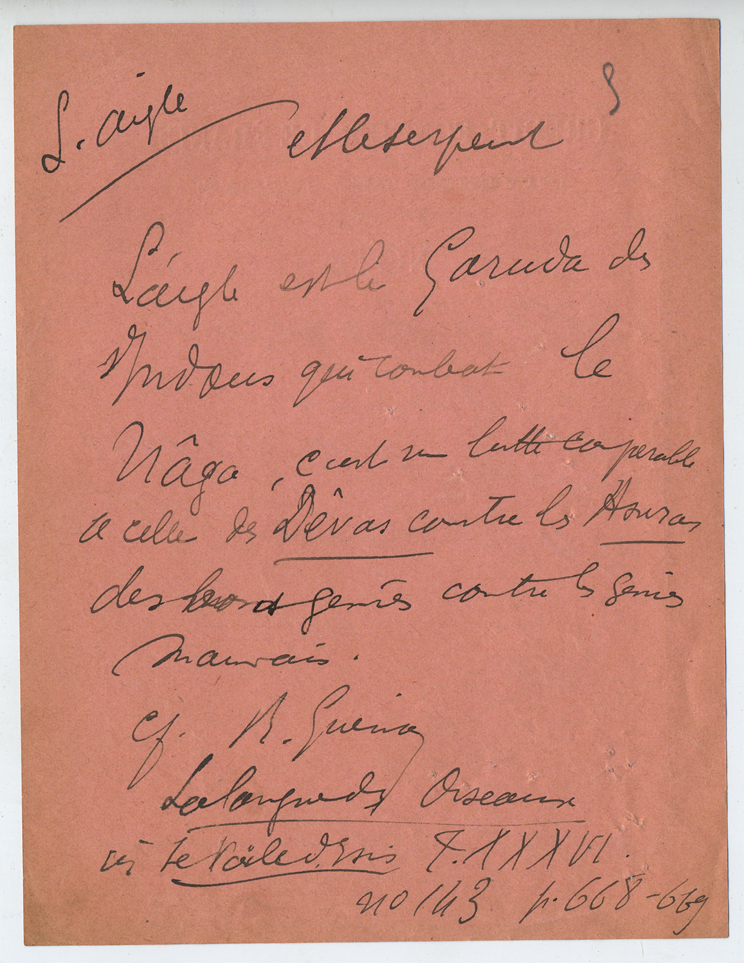 L'aigle et le serpent
L'aigle est le Garuda des
Indous qui combat le
Nâga, c'est une lutte comparable
à celle des Dêvas contre les Asuras
des bons génies contre les génies
mauvais.
cf. R. Guénon
La langue des Oiseaux
in Le Voile d'Isis T. XXXVI.
no 143 p. 668-669